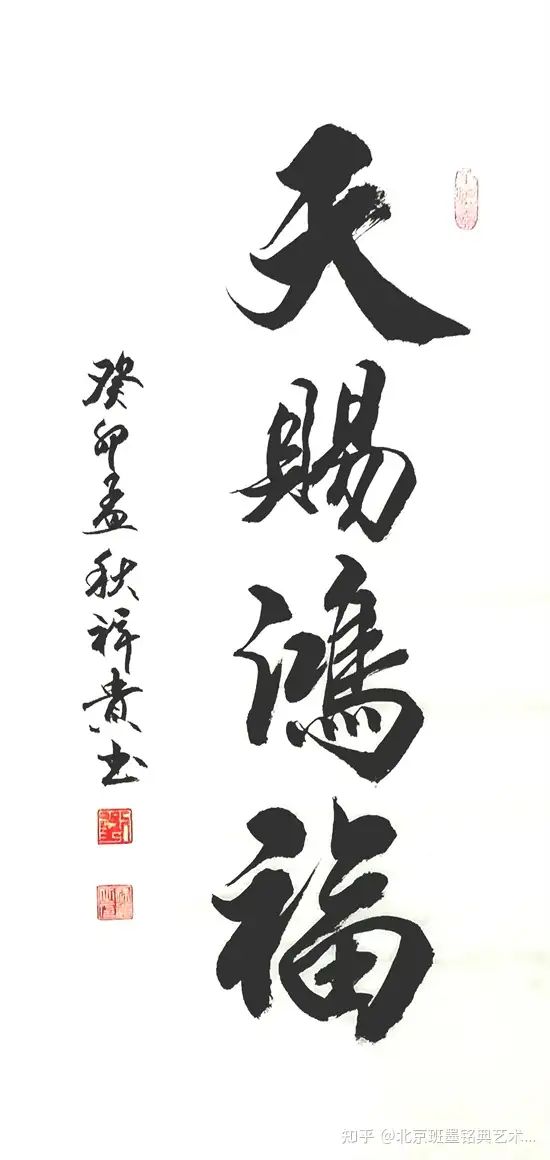 天赐鸿福
癸卯孟秋祥贵书
知乎 @北京班墨铭典艺术...